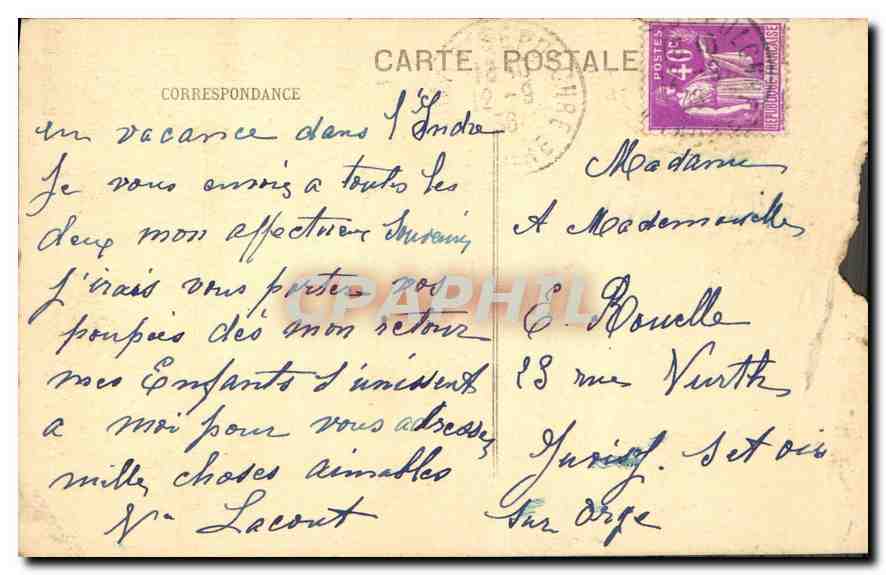 CARTE POSTALE
CORRESPONDANCE
en vacance dans l'Indre
Je vous envoie a toutes les
deux mon affectueux Souvenir
J'irais vous porter vos
poupées dés mon retour
mes Enfants s'unissent
a moi pour vous adresser
mille choses aimables
Vve Lacout
POSTES
40c
REPUBLIQUE FRANÇAISE
12 -9
Madame
A Mademoiselle
E. Rouelle
23 rue Vurtz
Juvisy. Set oise
sur Orge
CPAPHIL